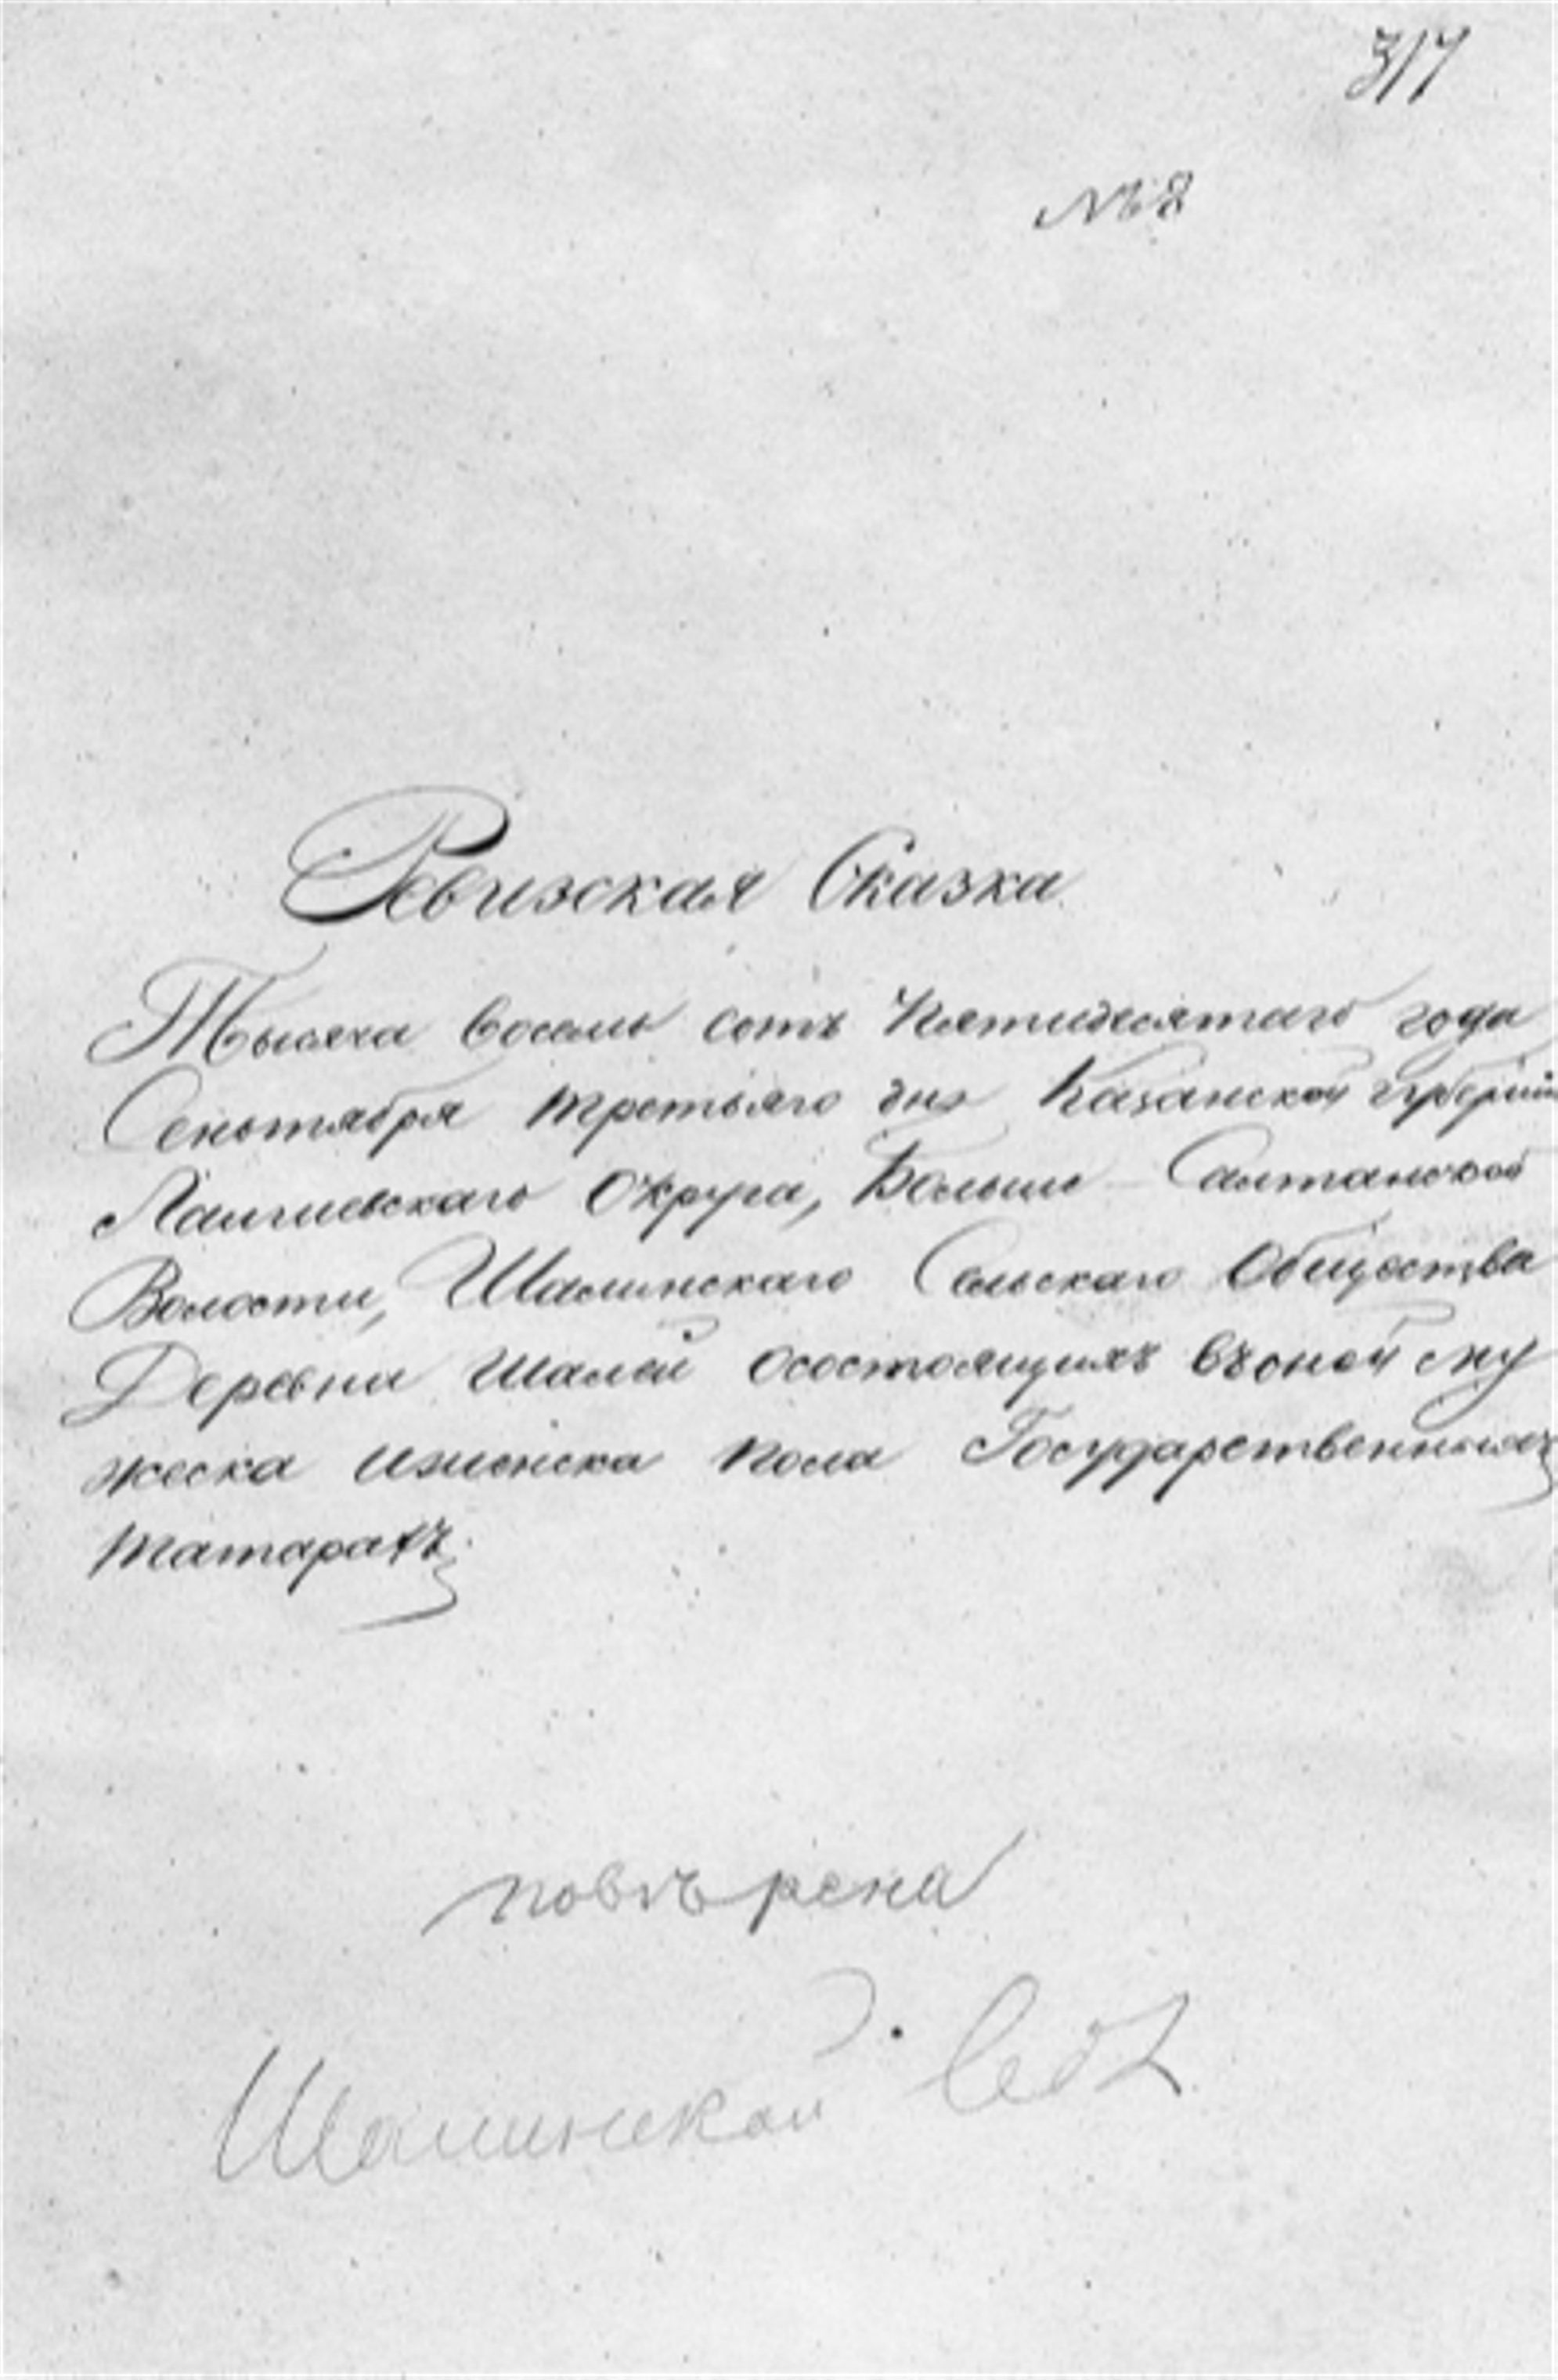 317
№ 8
Ревизская Сказка.
Тысяча восемь сотъ Пятидесятаго года
Сентября третьяго дня Казанской губерніи
Лаишевскаго Округа, Больше-Салтанской
Волости, Шалинскаго Сельскаго Общества
Деревни Шалей осостоящихъ въоной му
жеска иженска пола Государственныхъ
татарахъ.
повѣрена
Шалинской